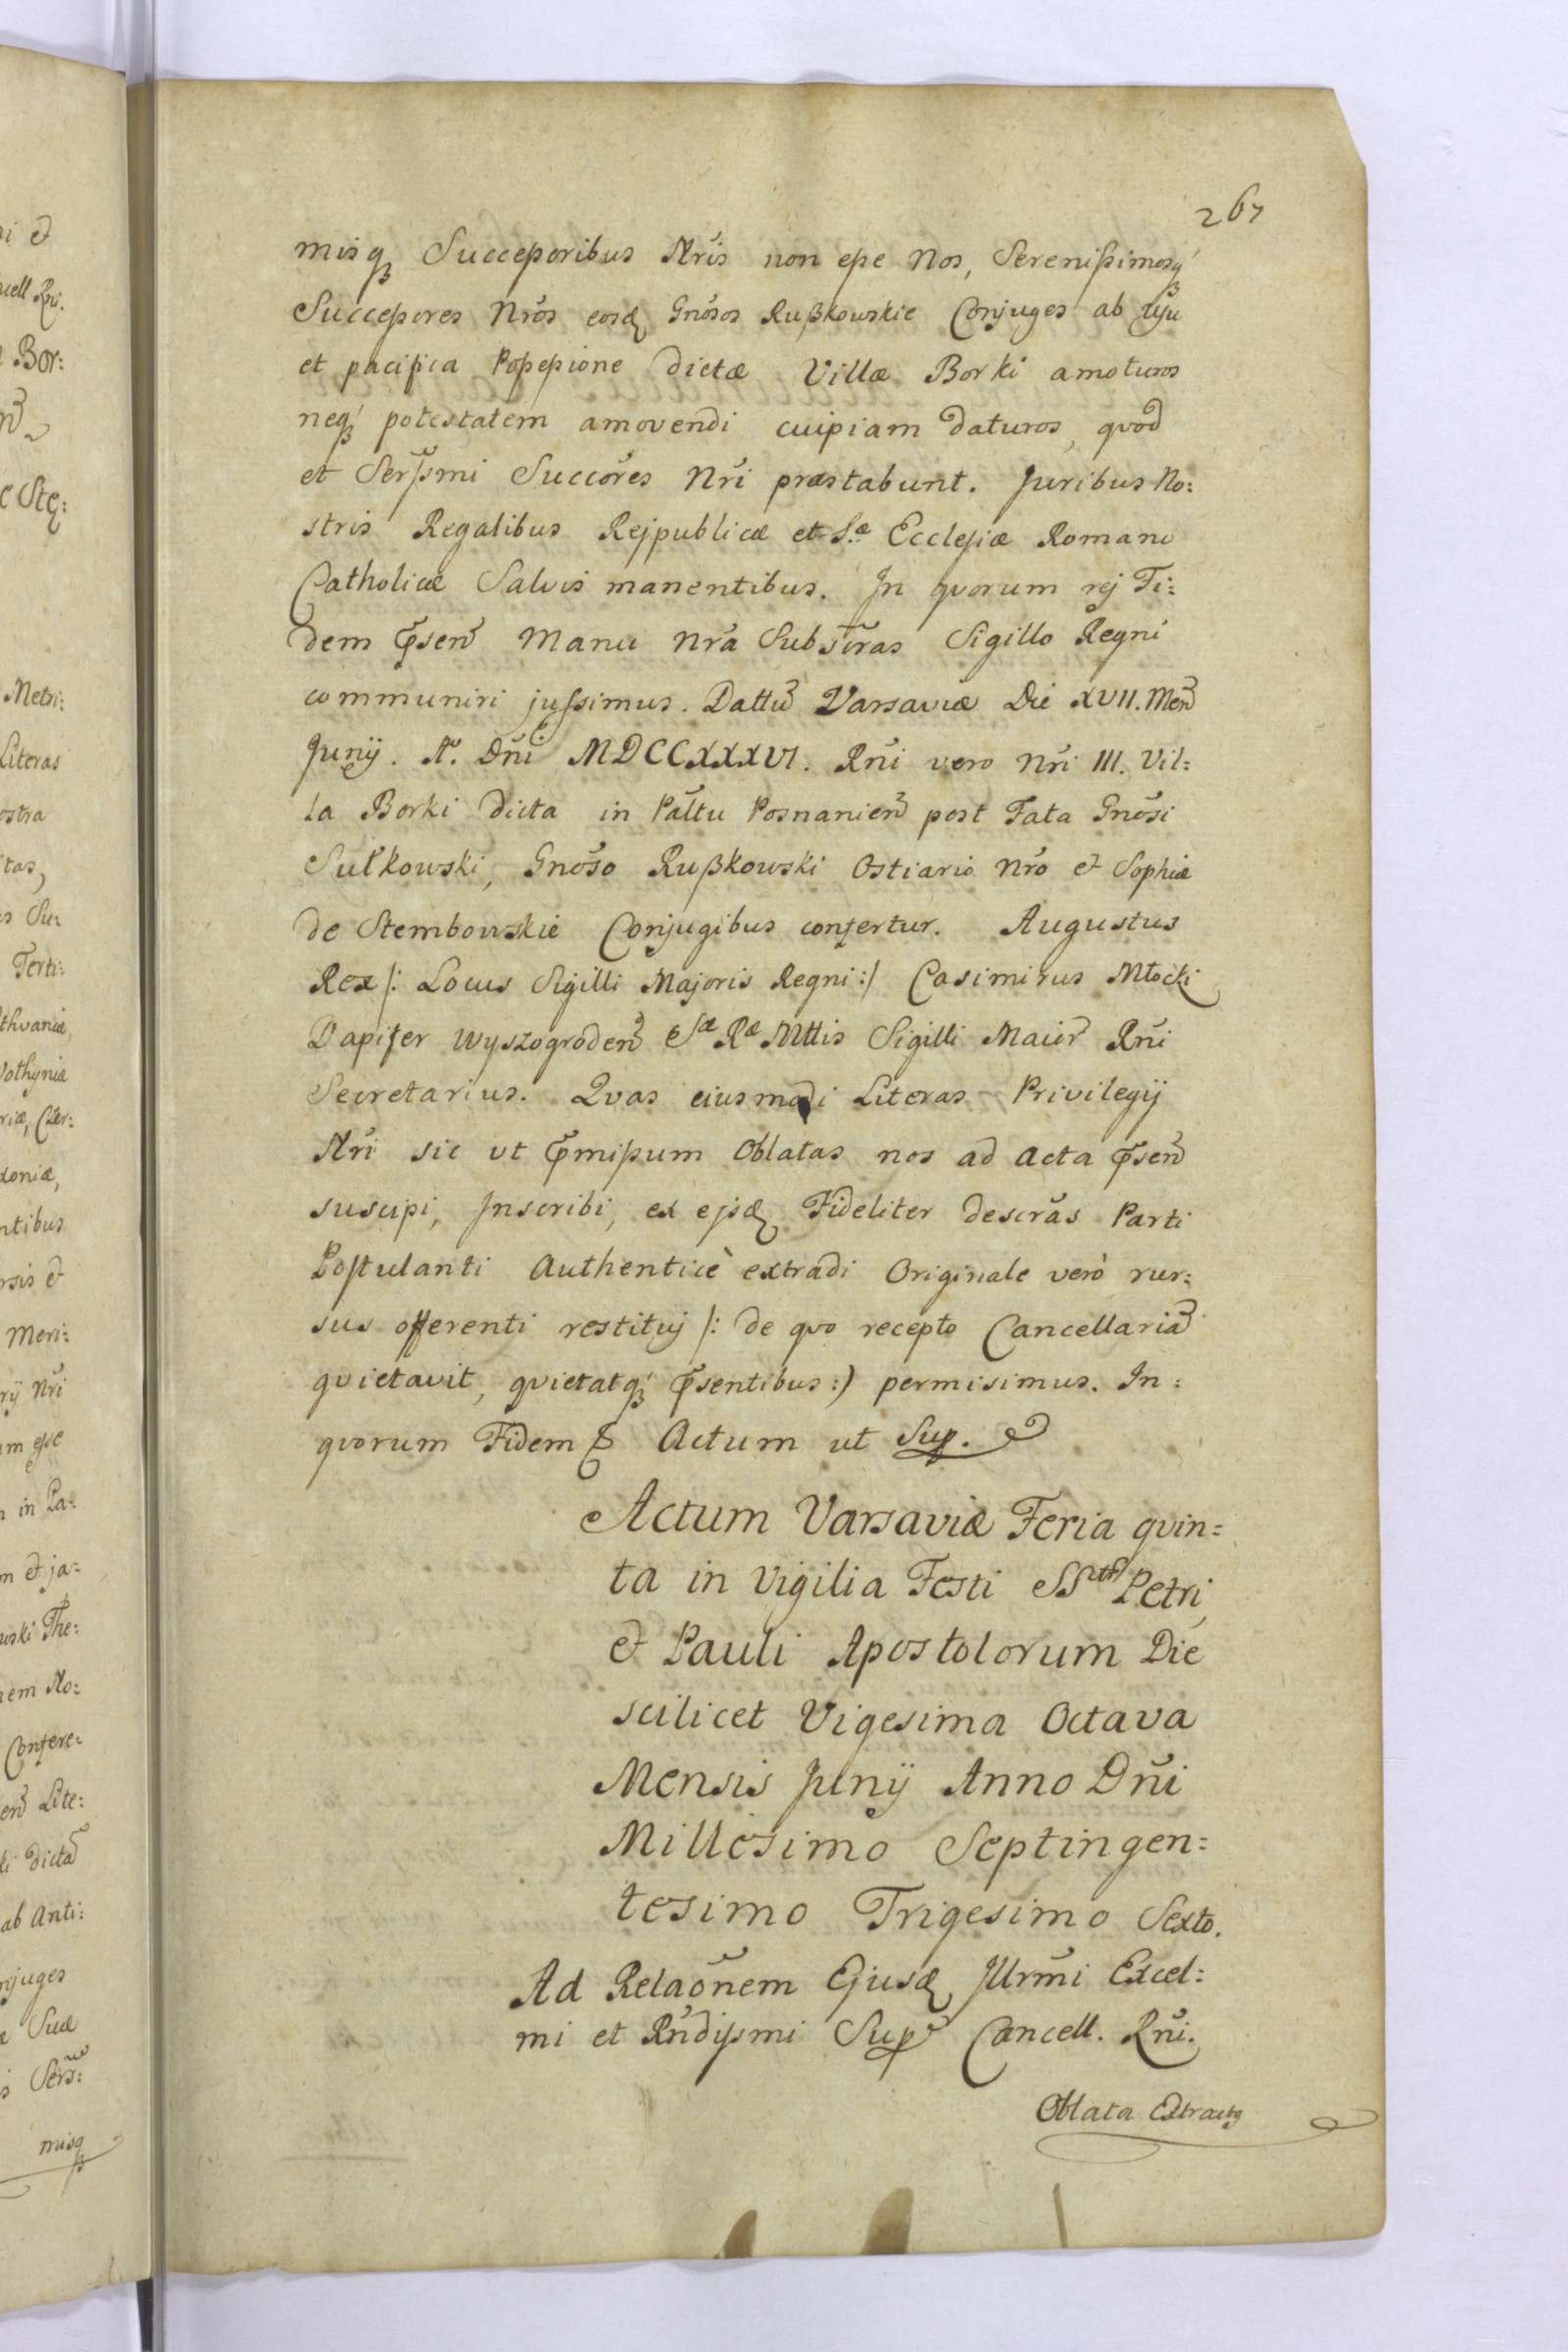 267
misq₃ Successoribus Nris non esse Nos, Serenissimosq₃
Successores Nros eosd Gnosos Rußkowskie Conjuges ab usu
et pacifica Possessione dictæ Villæ Borki amoturos
neq₃ potestatem amovendi cuipiam daturos, qvod
et Serssmi Succores Nri præstabunt. Juribus No:
stris Regalibus Rejpublicæ et S.æ Ecclesiæ Romano
Catholicæ Salvis manentibus. In qvorum rej Fi:
dem pñsen Manu Nra Subscras Sigillo Regni
communiri jussimus. Dattu Varsaviæ Die XVII. Men
Junij. Ao. Dni MDCCXXXVI. Rni vero Nri III. Vil:
la Borki dicta in Paltu Posnanien post Fata Gnosi
Sułkowski, Gnoso Rußkowski Ostiario Nro et Sophiæ
de Stembowskie Conjugibus confertur. Augustus
Rex /: Locus Sigilli Majoris Regni :/ Casimirus Młocki
Dapifer Wyszogroden Sæ Ræ Mttis Sigilli Maior Rni
Secretarius. Qvas eiusmodi Literas Privilegij
Nri sic ut pmissum Oblatas nos ad Acta psen
suscipi, Inscribi, ex ejsd Fideliter descras Parti
Postulanti Authenticè extradi Originale verò rur:
sus offerenti restituj /: de qvo recepto Cancellaria
qvietavit, qvietatq₃ psentibus :) permisimus. In:
qvorum Fidem & Actum ut Sup.
Actum Varsaviæ Feria qvin:
ta in Vigilia Festi SStor Petri
et Pauli Apostolorum Die
scilicet Vigesima Octava
Mensis Junij Anno Dni
Millesimo Septingen:
tesimo Trigesimo Sexto.
Ad Relaonem Ejusd Jllrmi Excel:
mi et Rndissmi Sup Cancell. Rni.
Oblata Extractus